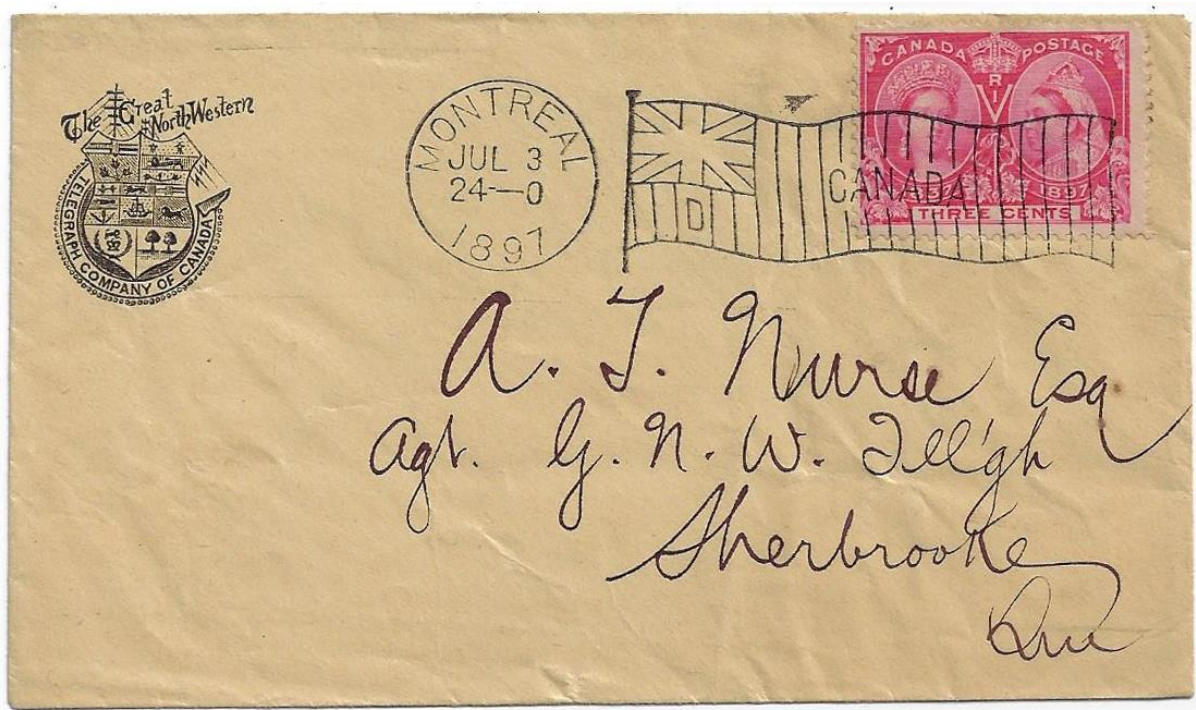 The Great
North Western
TELEGRAPH COMPANY OF CANADA
MONTREAL
JUL 3
24—0
1897
D
CANADA
CANADA POSTAGE
V R I
1897
THREE CENTS
A. T. Nurse Esq
Agt. G. N. W. Tel'gh
Sherbrooke
Que